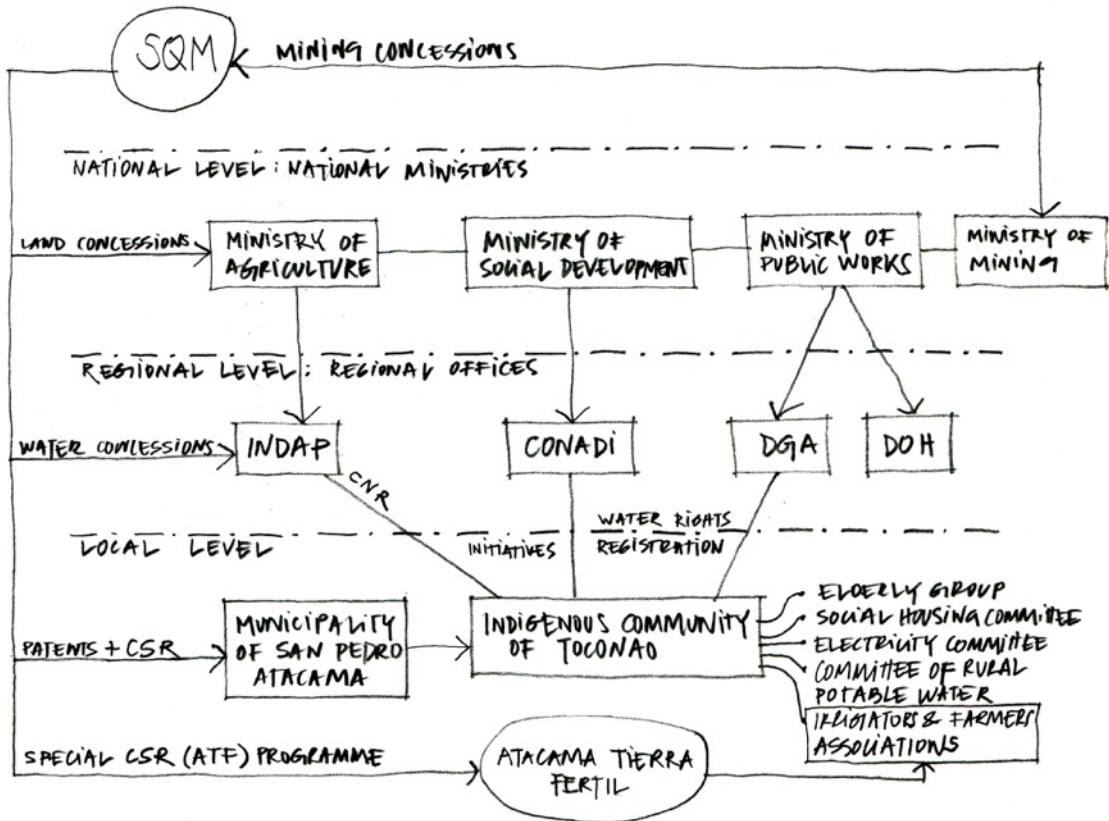 SQM
MINING CONCESSIONS
NATIONAL LEVEL: NATIONAL MINISTRIES
LAND CONCESSIONS
MINISTRY OF
AGRICULTURE
MINISTRY OF
SOCIAL DEVELOPMENT
MINISTRY OF
PUBLIC WORKS
MINISTRY OF
MINING
REGIONAL LEVEL: REGIONAL OFFICES
WATER CONCESSIONS
INDAP
CONADI
DGA
DOH
CNR
LOCAL LEVEL
INITIATIVES
WATER RIGHTS
REGISTRATION
PATENTS + CSR
MUNICIPALITY
OF SAN PEDRO
ATACAMA
INDIGENOUS COMMUNITY
OF TOCONAO
ELDERLY GROUP
SOCIAL HOUSING COMMITTEE
ELECTRICITY COMMITTEE
COMMITTEE OF RURAL
POTABLE WATER
IRRIGATORS & FARMERS
ASSOCIATIONS
SPECIAL CSR (ATF) PROGRAMME
ATACAMA TIERRA
FERTIL